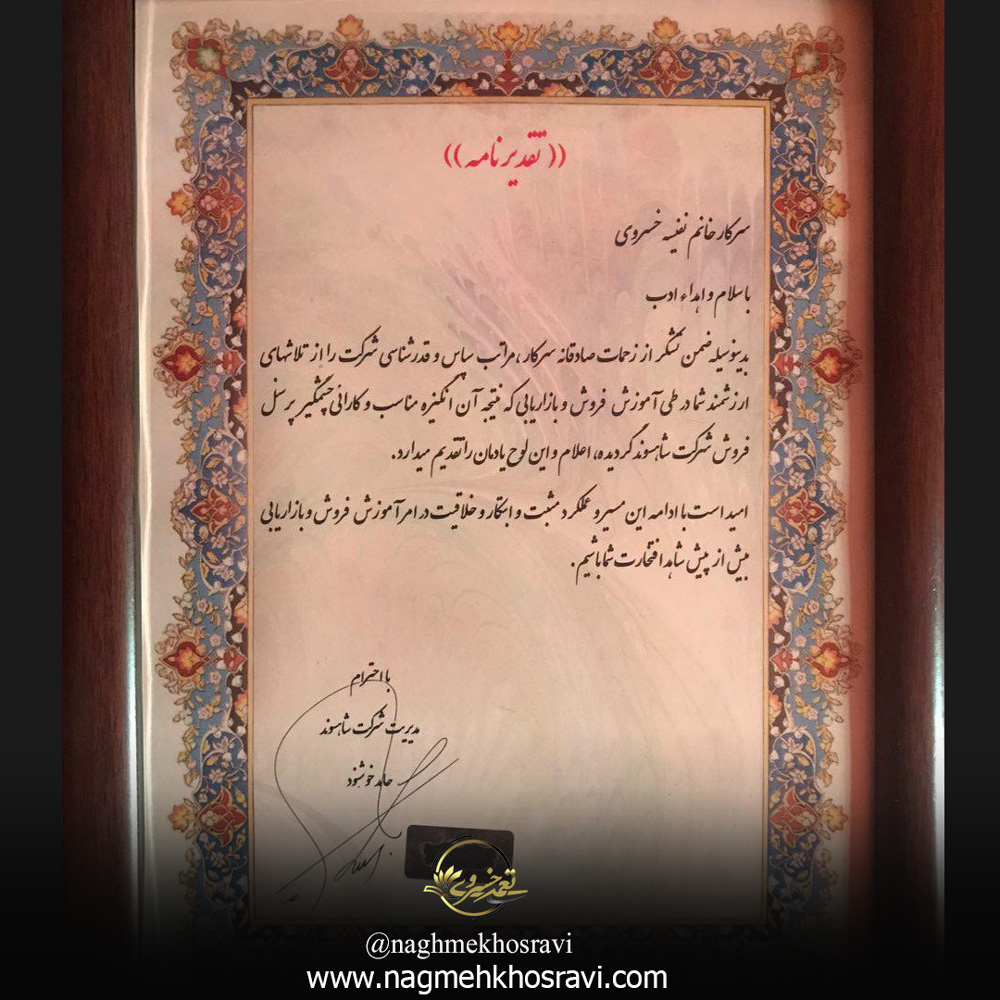 (( تقدیر نامه ))
سرکار خانم نفیسه خسروی
با سلام و اهداء ادب
بدینوسیله ضمن تشکر از زحمات صادقانه سرکار، مراتب سپاس و قدرشناسی شرکت را از تلاشهای
ارزشمند شما در طی آموزش فروش و بازاریابی که نتیجه آن انگیزه مناسب و کارائی چشمگیر پرسنل
فروش شرکت شاهسوند گردیده، اعلام و این لوح یادمان را تقدیم میدارد.
امید است با ادامه این مسیر و عملکرد مثبت و ابتکار و خلاقیت در امر آموزش فروش و بازاریابی
بیش از پیش شاهد افتخارت شما باشیم.
با احترام
مدیریت شرکت شاهسوند
حامد خوشنود
نغمه خسروی
@naghmekhosravi
www.nagmehkhosravi.com